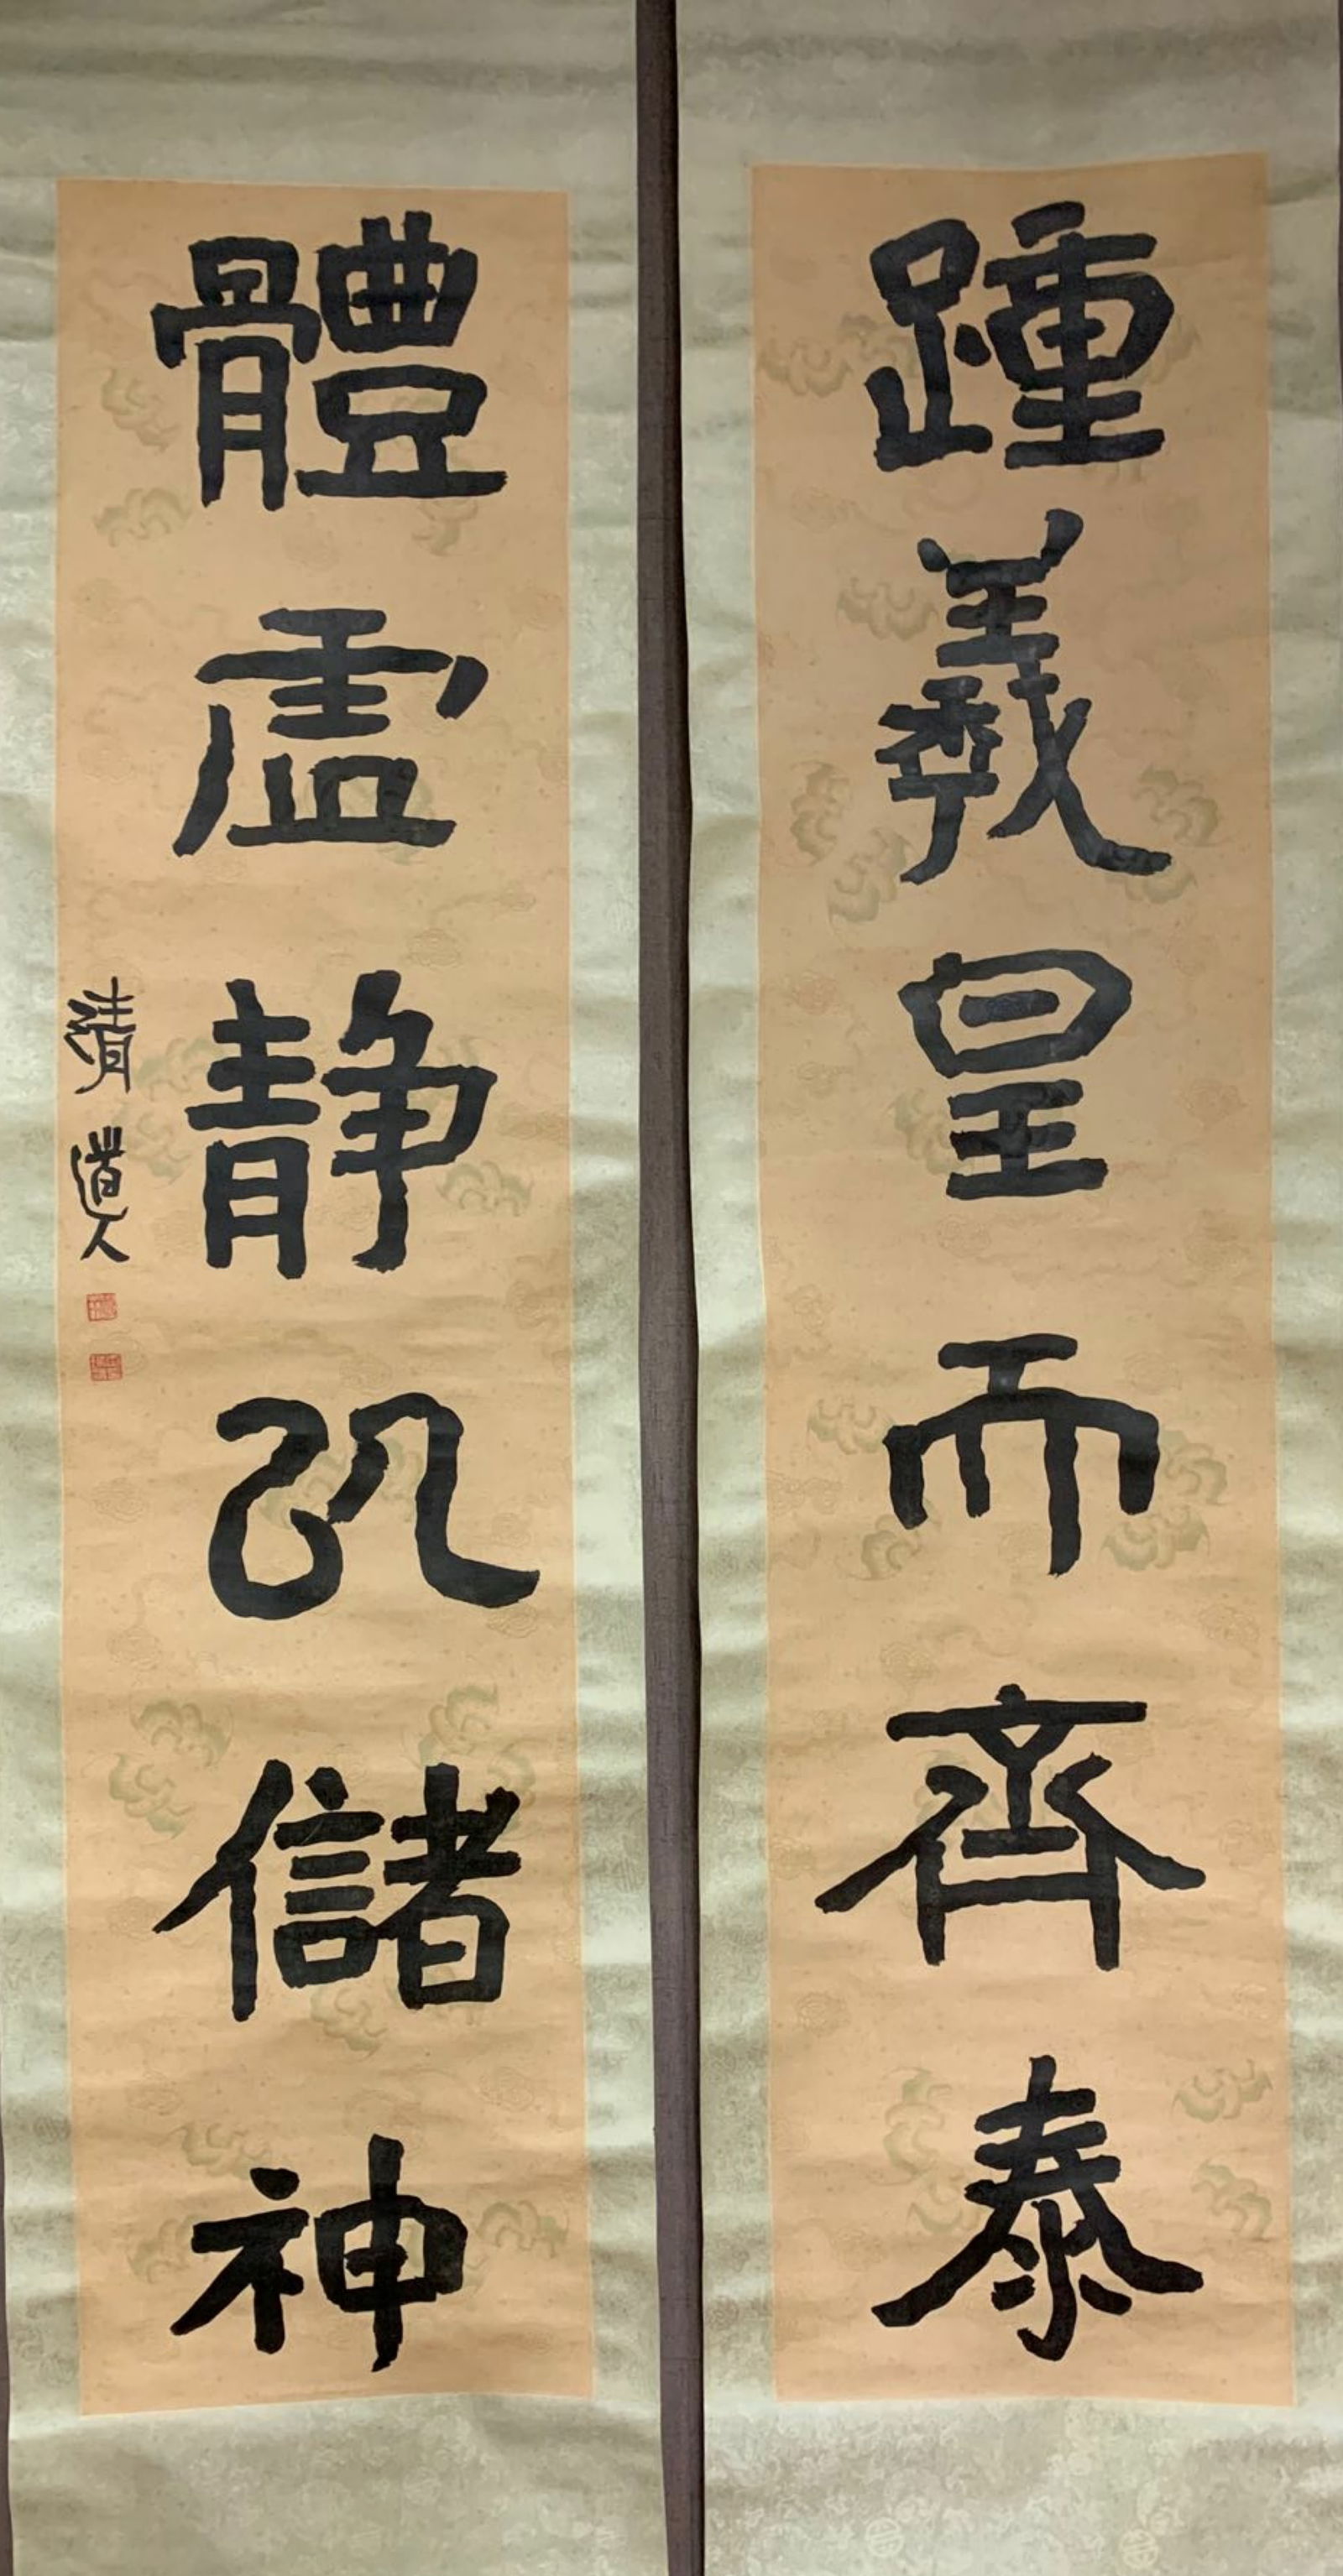 踵羲皇而齊泰
體虛靜以儲神
清道人